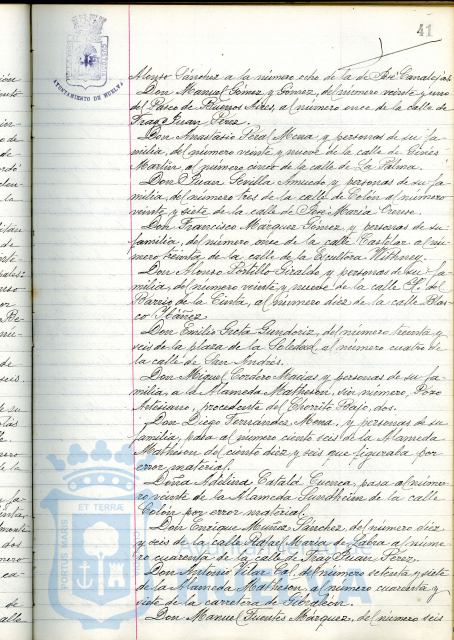 41
AYUNTAMIENTO DE HUELVA
Alonso Sánchez a la número ocho de la de José Canalejas.
Don Manuel Gómez y Gómez, del número veinte y uno
del Paseo de Buenos Aires, al número once de la calle de
Fray Juan Pérez.
Don Anastasio Mena y personas de su fa-
milia, del número veinte y nueve de la calle de Ginés
Martín, al número cinco de la calle de La Palma.
Don Juan Sevilla Amuedo y personas de su fa-
milia, del número tres de la calle de Colón al número
veinte y siete de la calle de José María
Don Francisco Márquez Gómez, y personas de su
familia, del número once de la calle Castelar al nú-
mero treinta de la calle de la Escultora Withney.
Don Alonso Portillo Giraldo y personas de su fa-
milia, del número veinte y nueve de la calle del
Barrio de la Cinta, al número diez de la calle Blas-
co Ybáñez
Don Emilio del número treinta y
seis de la plaza de la Soledad, al número cuatro de
la calle de San Andrés.
Don Miguel Cordero Macías y personas de su fa-
milia, a la Alameda Matheson, sin número, Pozo
Artesiano, procedente del Chorrito Bajo, dos.
Don Diego Fernández Mena, y personas de su
familia, pasa al número ciento seis de la Alameda
Matheson del ciento diez y seis que figuraba por
error material.
Doña Adelina Catalá Cuenca, pasa al núme-
ro veinte de la Alameda Sundheim de la calle
Colón por error material.
Don Enrique Muñoz Sánchez, del número diez
y seis de la calle Rafael María de Labra al núme-
ro cuarenta de la calle de Fray Juan Pérez.
Don Antonio Vilar Col, del número setenta y siete
de la Alameda Matheson, al número cuarenta y
siete de la carretera de Gibraleón.
Don Manuel Fuentes Márquez, del número seis
PORTUS MARIS ET TERRÆ